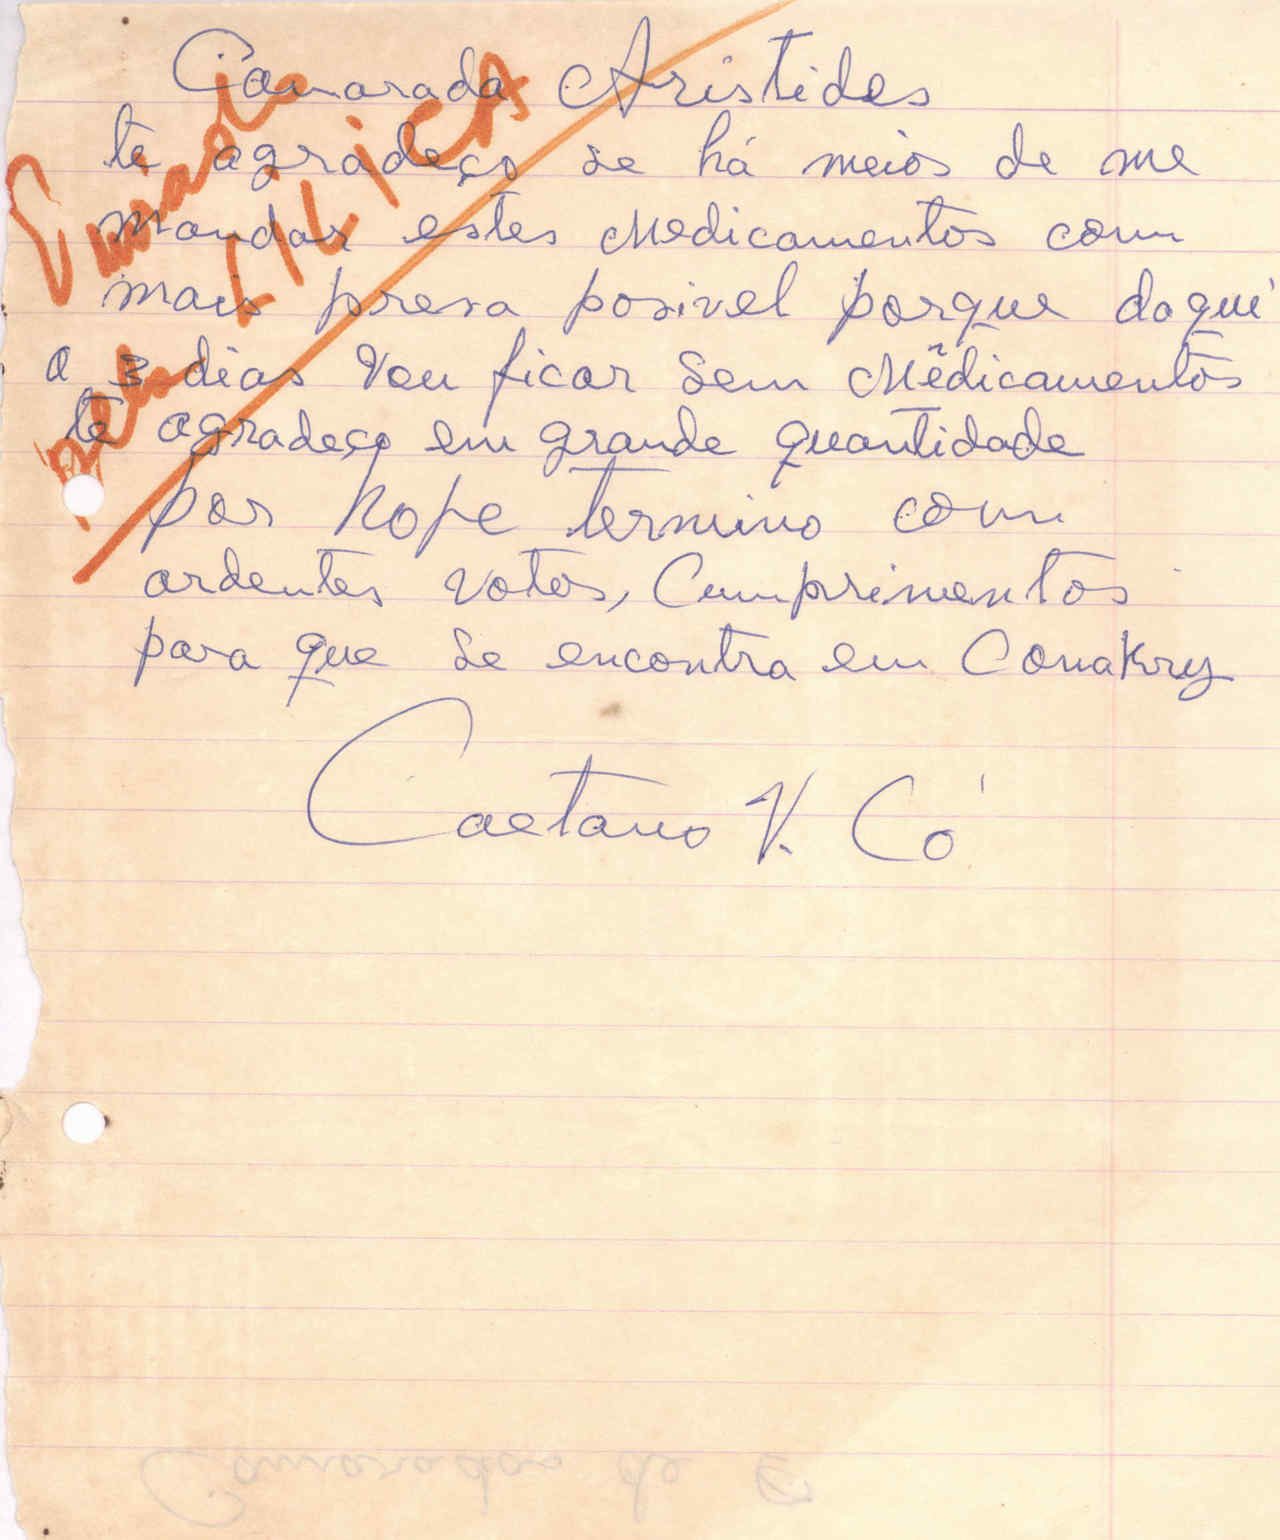 Camarada Aristides
te agradeço se há meios de me
mandar estes Medicamentos com
mais presa posivel porque daqui
a 3 dias vou ficar sem Medicamentos
te agradeço em grande quantidade
por hoje termino com
ardentes votos, Cumprimentos
para que se encontra em Conakry
Caetano V. Có
Enviado
pela LILICA
Camaradas de